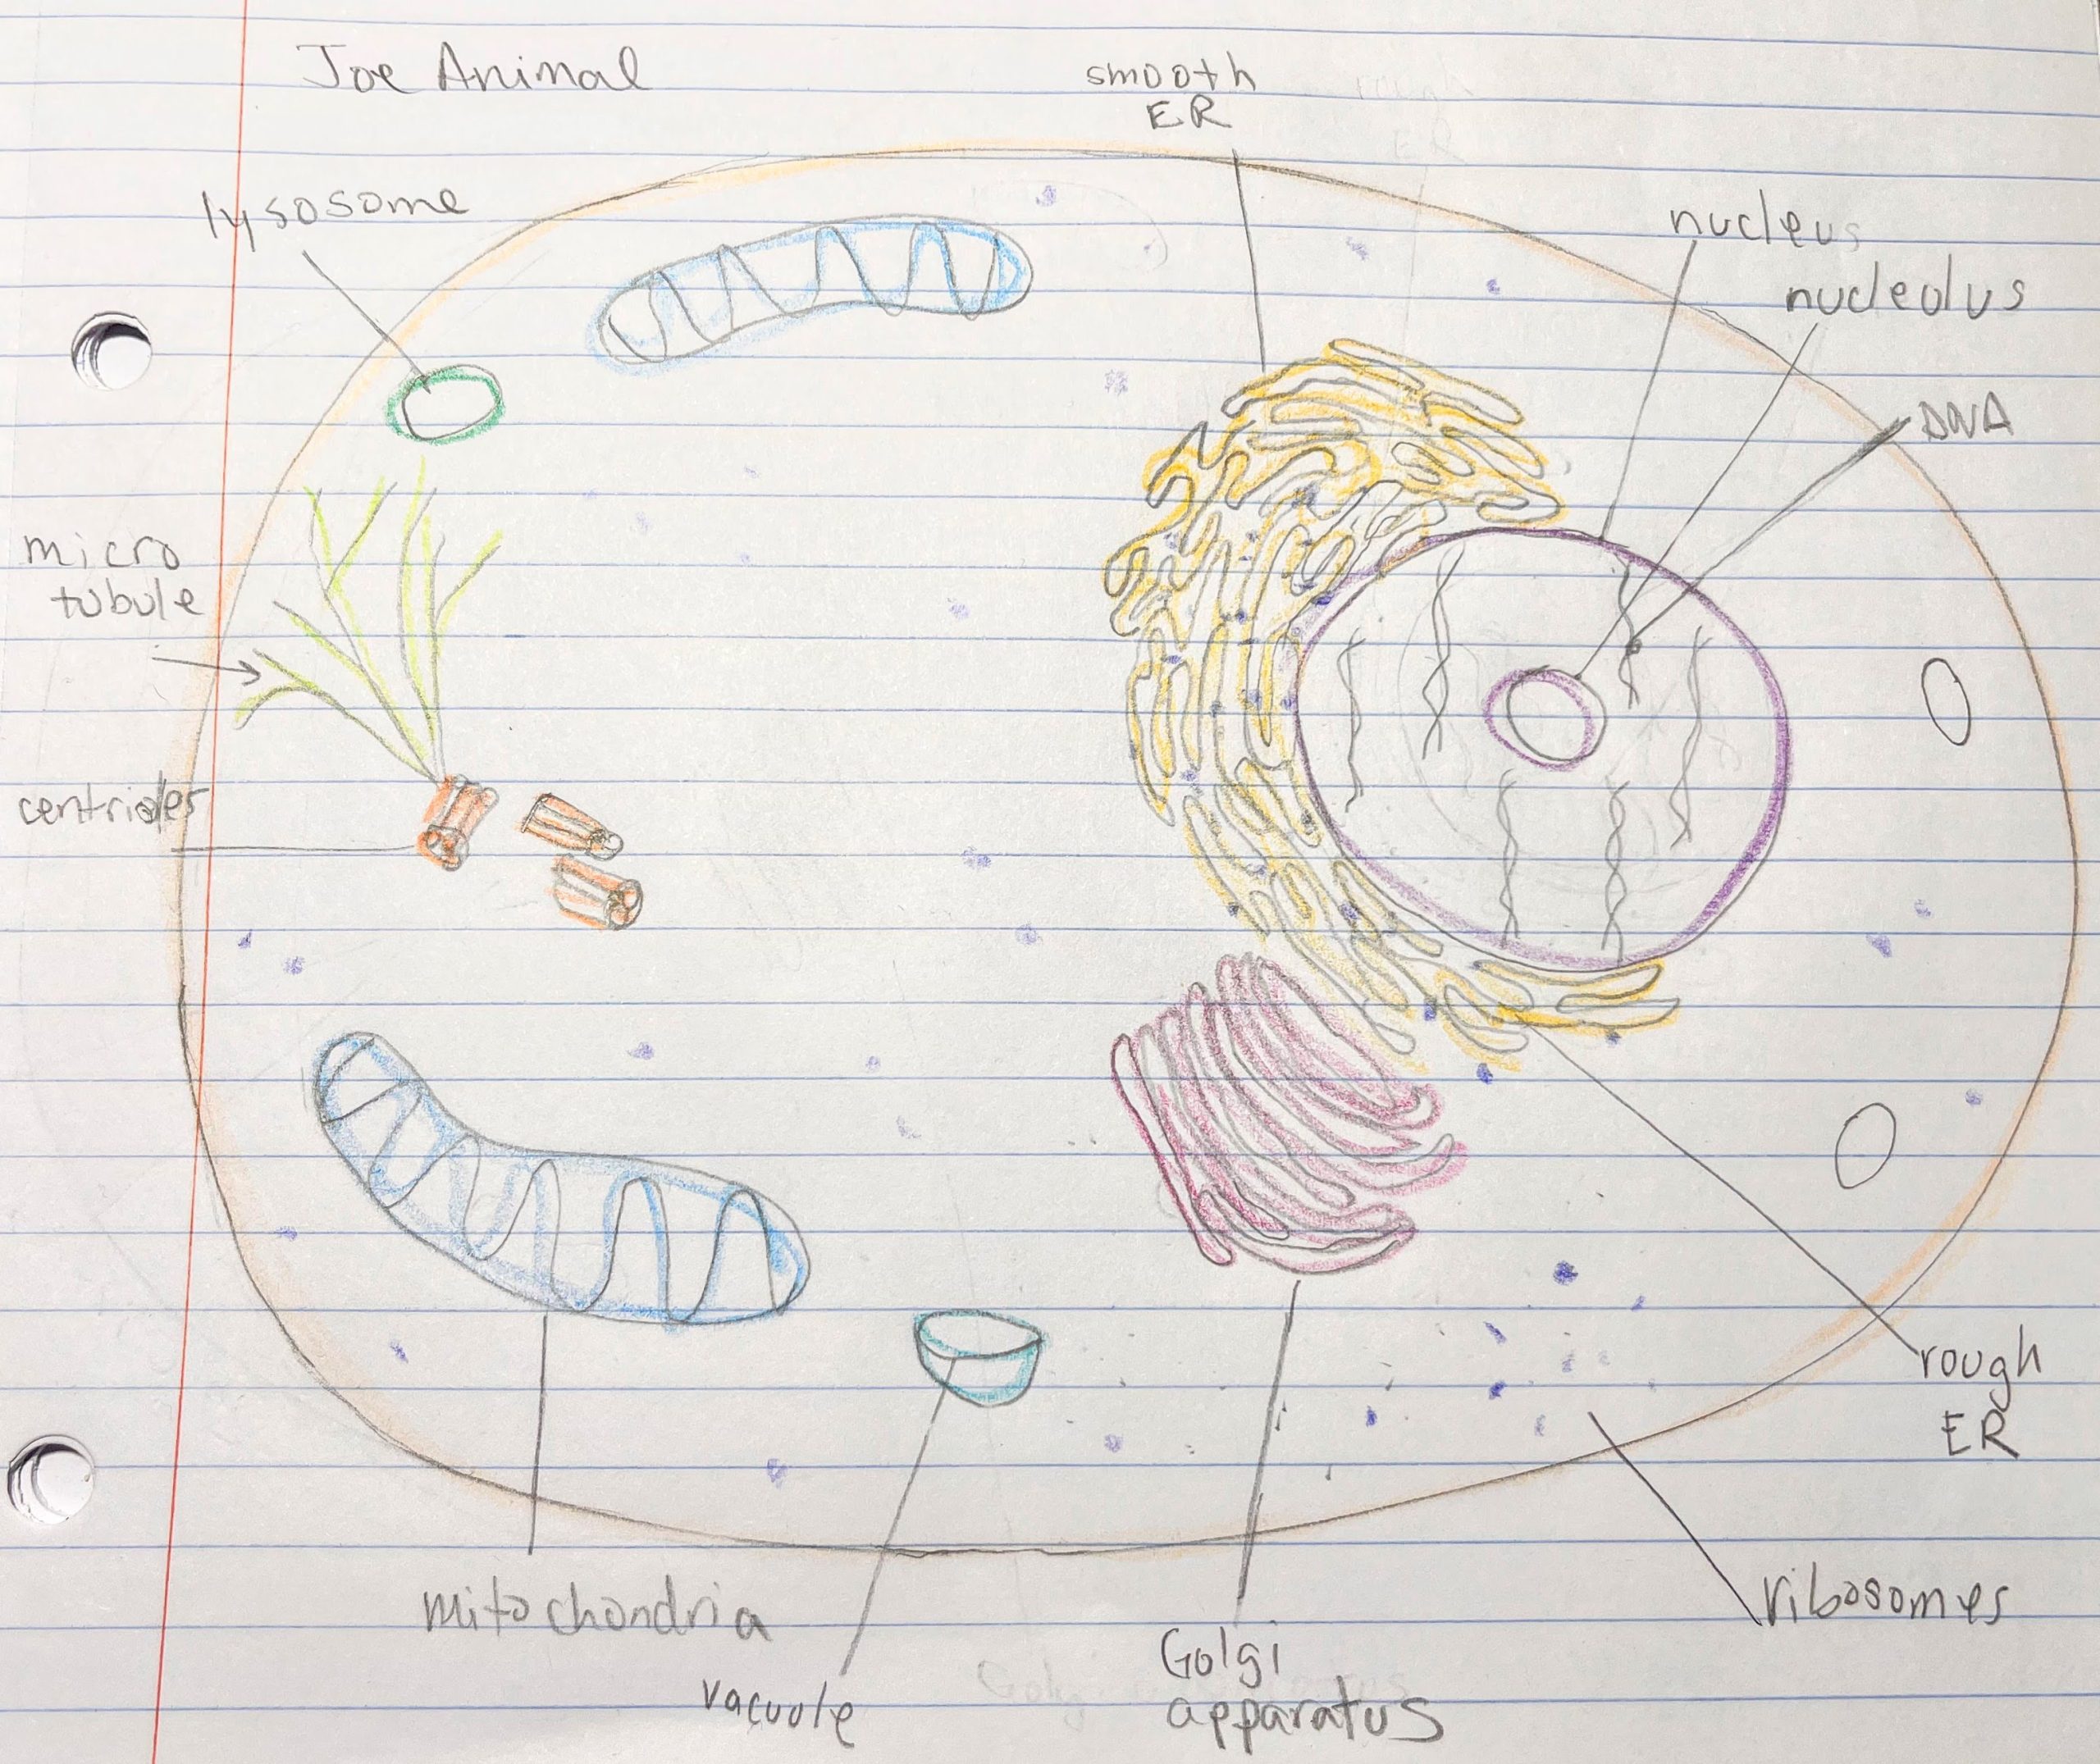 Joe Animal
smooth
ER
rough
ER
lysosome
nucleus
nucleolus
DNA
micro
tubule
centrioles
rough
ER
mitochondria
ribosomes
vacuole
Golgi
apparatus